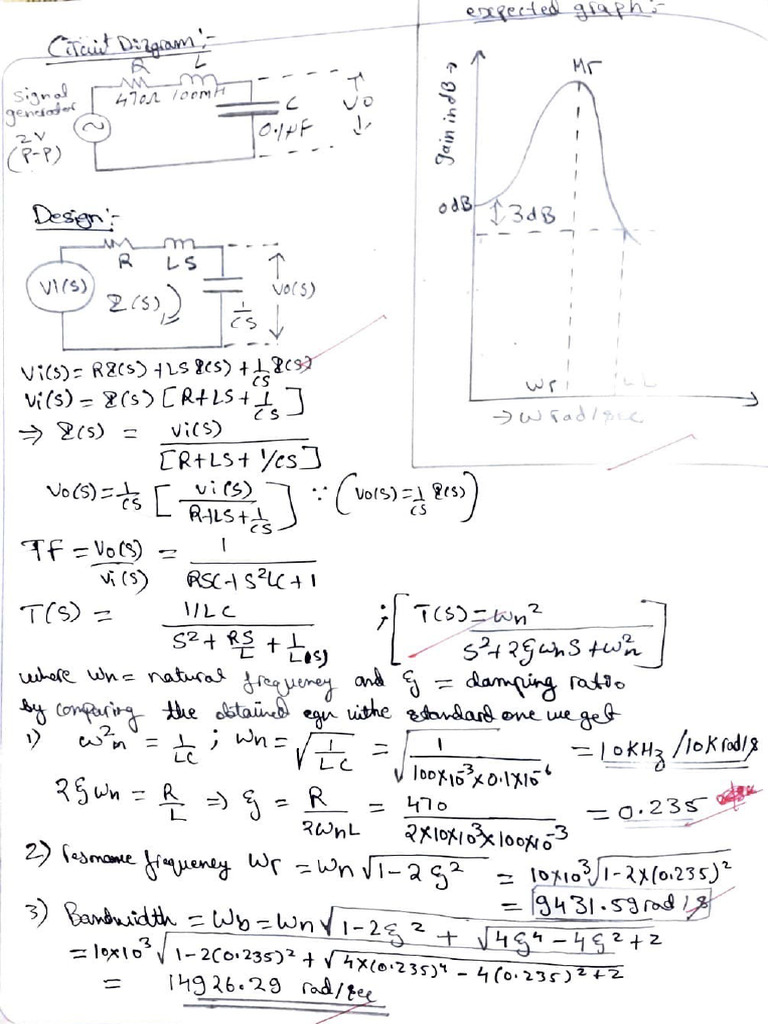 Circuit Diagram:-
R L
470Ω 100mH
signal generator
2V
(P-P)
C
0.1μF
Vo
expected graph:-
Mr
gain in dB →
0dB
3dB
Wr
→ W rad/sec
Design:-
R LS
Vi(s)
I(s)
1/CS
Vo(s)
Vi(s) = RI(s) + LS I(s) + 1/CS I(s)
Vi(s) = I(s) [R+LS+ 1/CS]
⇒ I(s) = Vi(s) / [R+LS+ 1/CS]
Vo(s) = 1/CS [Vi(s) / R+LS+1/CS] ∵ (Vo(s) = 1/CS I(s))
TF = Vo(s)/Vi(s) = 1 / RSC+S²LC+1
T(S) = 1/LC / S² + RS/L + 1/LC ; [T(S) = ωn² / S²+2ξωnS+ωn²]
where ωn = natural frequency and ξ = damping ratio
by comparing the obtained eqn withe standard one we get
1) ω²n = 1/LC ; ωn = √(1/LC) = √(1 / 100×10⁻³×0.1×10⁻⁶) = 10KHz /10K rad/s
2ξωn = R/L ⇒ ξ = R / 2ωnL = 470 / 2×10×10³×100×10⁻³ = 0.235
2) resonance frequency Wr = Wn√1-2ξ² = 10×10³√1-2×(0.235)²
= 9431.59 rad/s
3) Bandwidth = Wb = Wn√1-2ξ² + √4ξ⁴-4ξ²+2
= 10×10³√1-2(0.235)² + √4×(0.235)⁴-4(0.235)²+2
= 14926.29 rad/sec